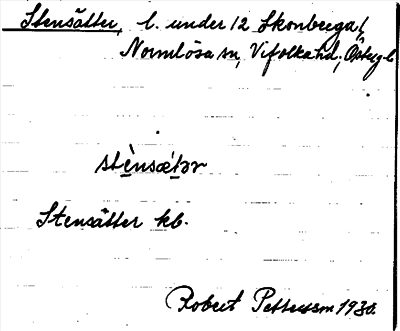 Stensätter, l. under 12 Skonberga,
Normlösa sn, Vifolka hd, Östergl.
stènsæ̀tər
Stensätter kb.
Robert Pettersson 1930.